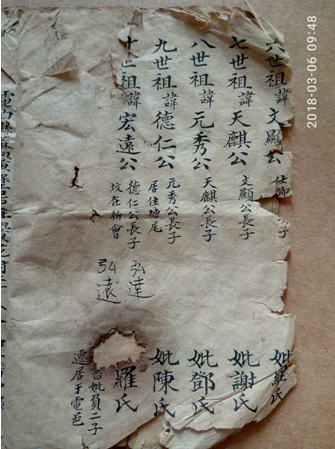 六世祖諱文顯公
妣羅氏
七世祖諱天麒公 文顯公長子
妣謝氏
八世祖諱元秀公 天麒公長子
妣鄧氏
九世祖諱德仁公 元秀公長子
居住塘尾
妣陳氏
十世祖諱宏遠公 德仁公長子
坟在新會
弘達
弘遠
羅氏
妣負二子
遷居于電邑
2018-03-06 09:48